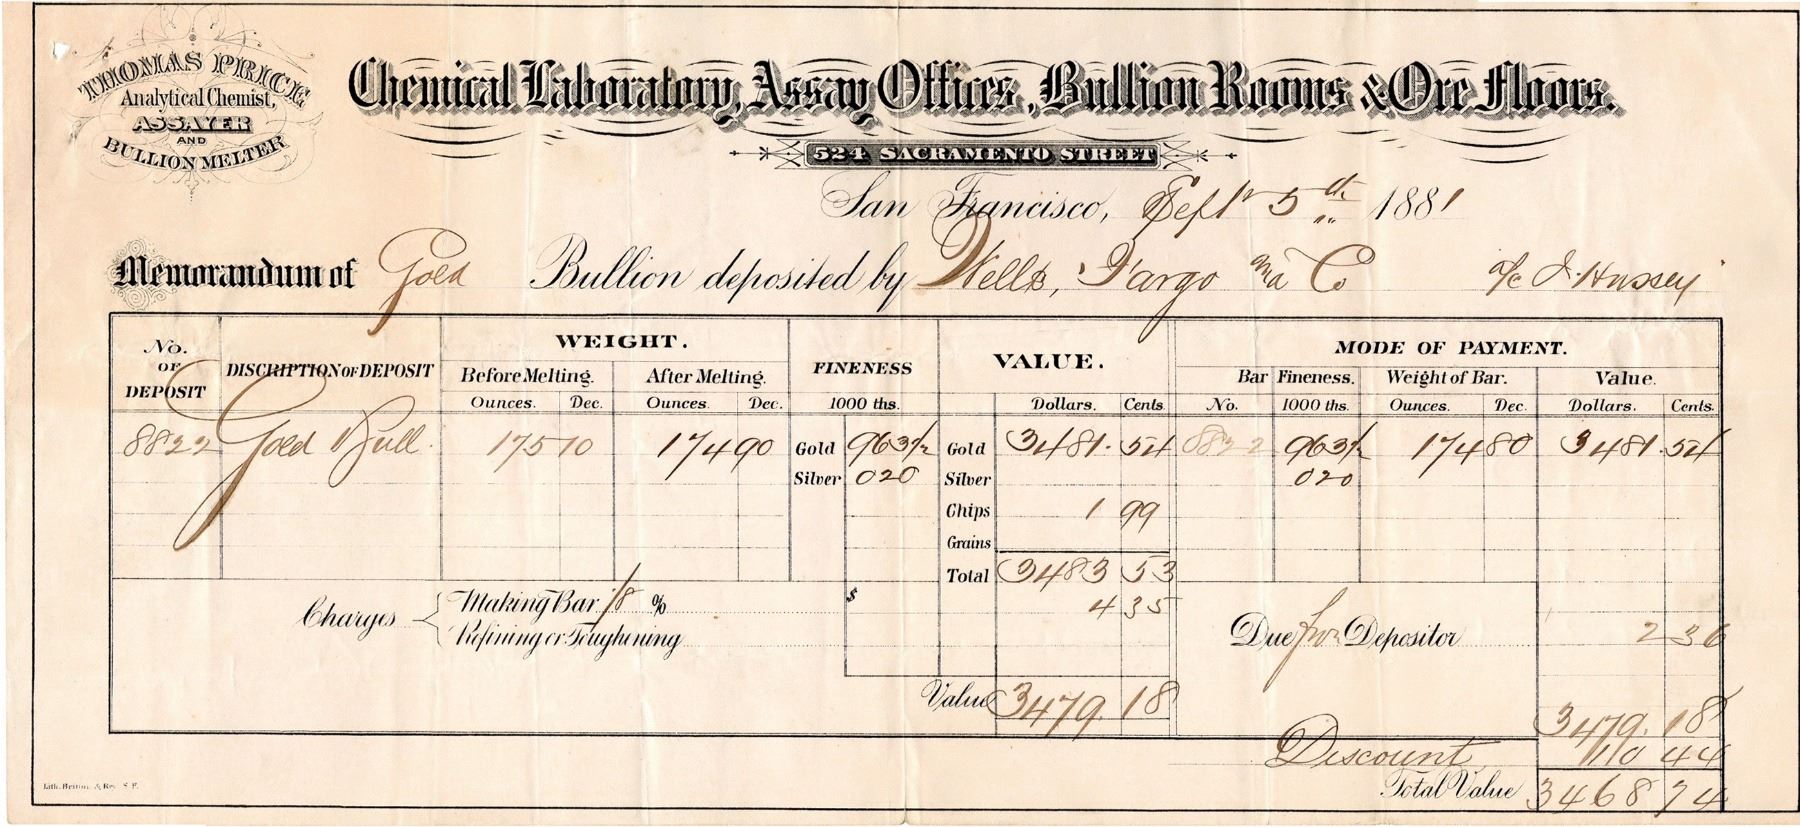 THOMAS PRICE
Analytical Chemist,
ASSAYER
AND
BULLION MELTER
Chemical Laboratory, Assay Offices, Bullion Rooms & Ore Floors.
524 SACRAMENTO STREET
San Francisco, Sept 5th 1881
Memorandum of Gold Bullion deposited by Wells, Fargo and Co a/c J. Hussey
No. OF DEPOSIT
DISCRIPTION OF DEPOSIT
WEIGHT.
Before Melting. After Melting.
Ounces. Dec. Ounces. Dec.
FINENESS
1000 ths.
VALUE.
Dollars. Cents.
MODE OF PAYMENT.
Bar Fineness. Weight of Bar. Value.
No. 1000 ths. Ounces. Dec. Dollars. Cents.
8822 Gold Bull. 175 10 174 90 Gold 963 1/2 Gold 3481. 54 8822 963 1/2 174 80 3481. 54
Silver 020 Silver 020
Chips 1 99
Grains
Total 3483 53
Charges Making Bar 1/8 % $ 4 35
Refining or Toughening
Due from Depositor 2 36
Value 3479. 18
3479. 18
Discount 10 44
Total Value 3468 74
Lith. Britton & Rey S. F.